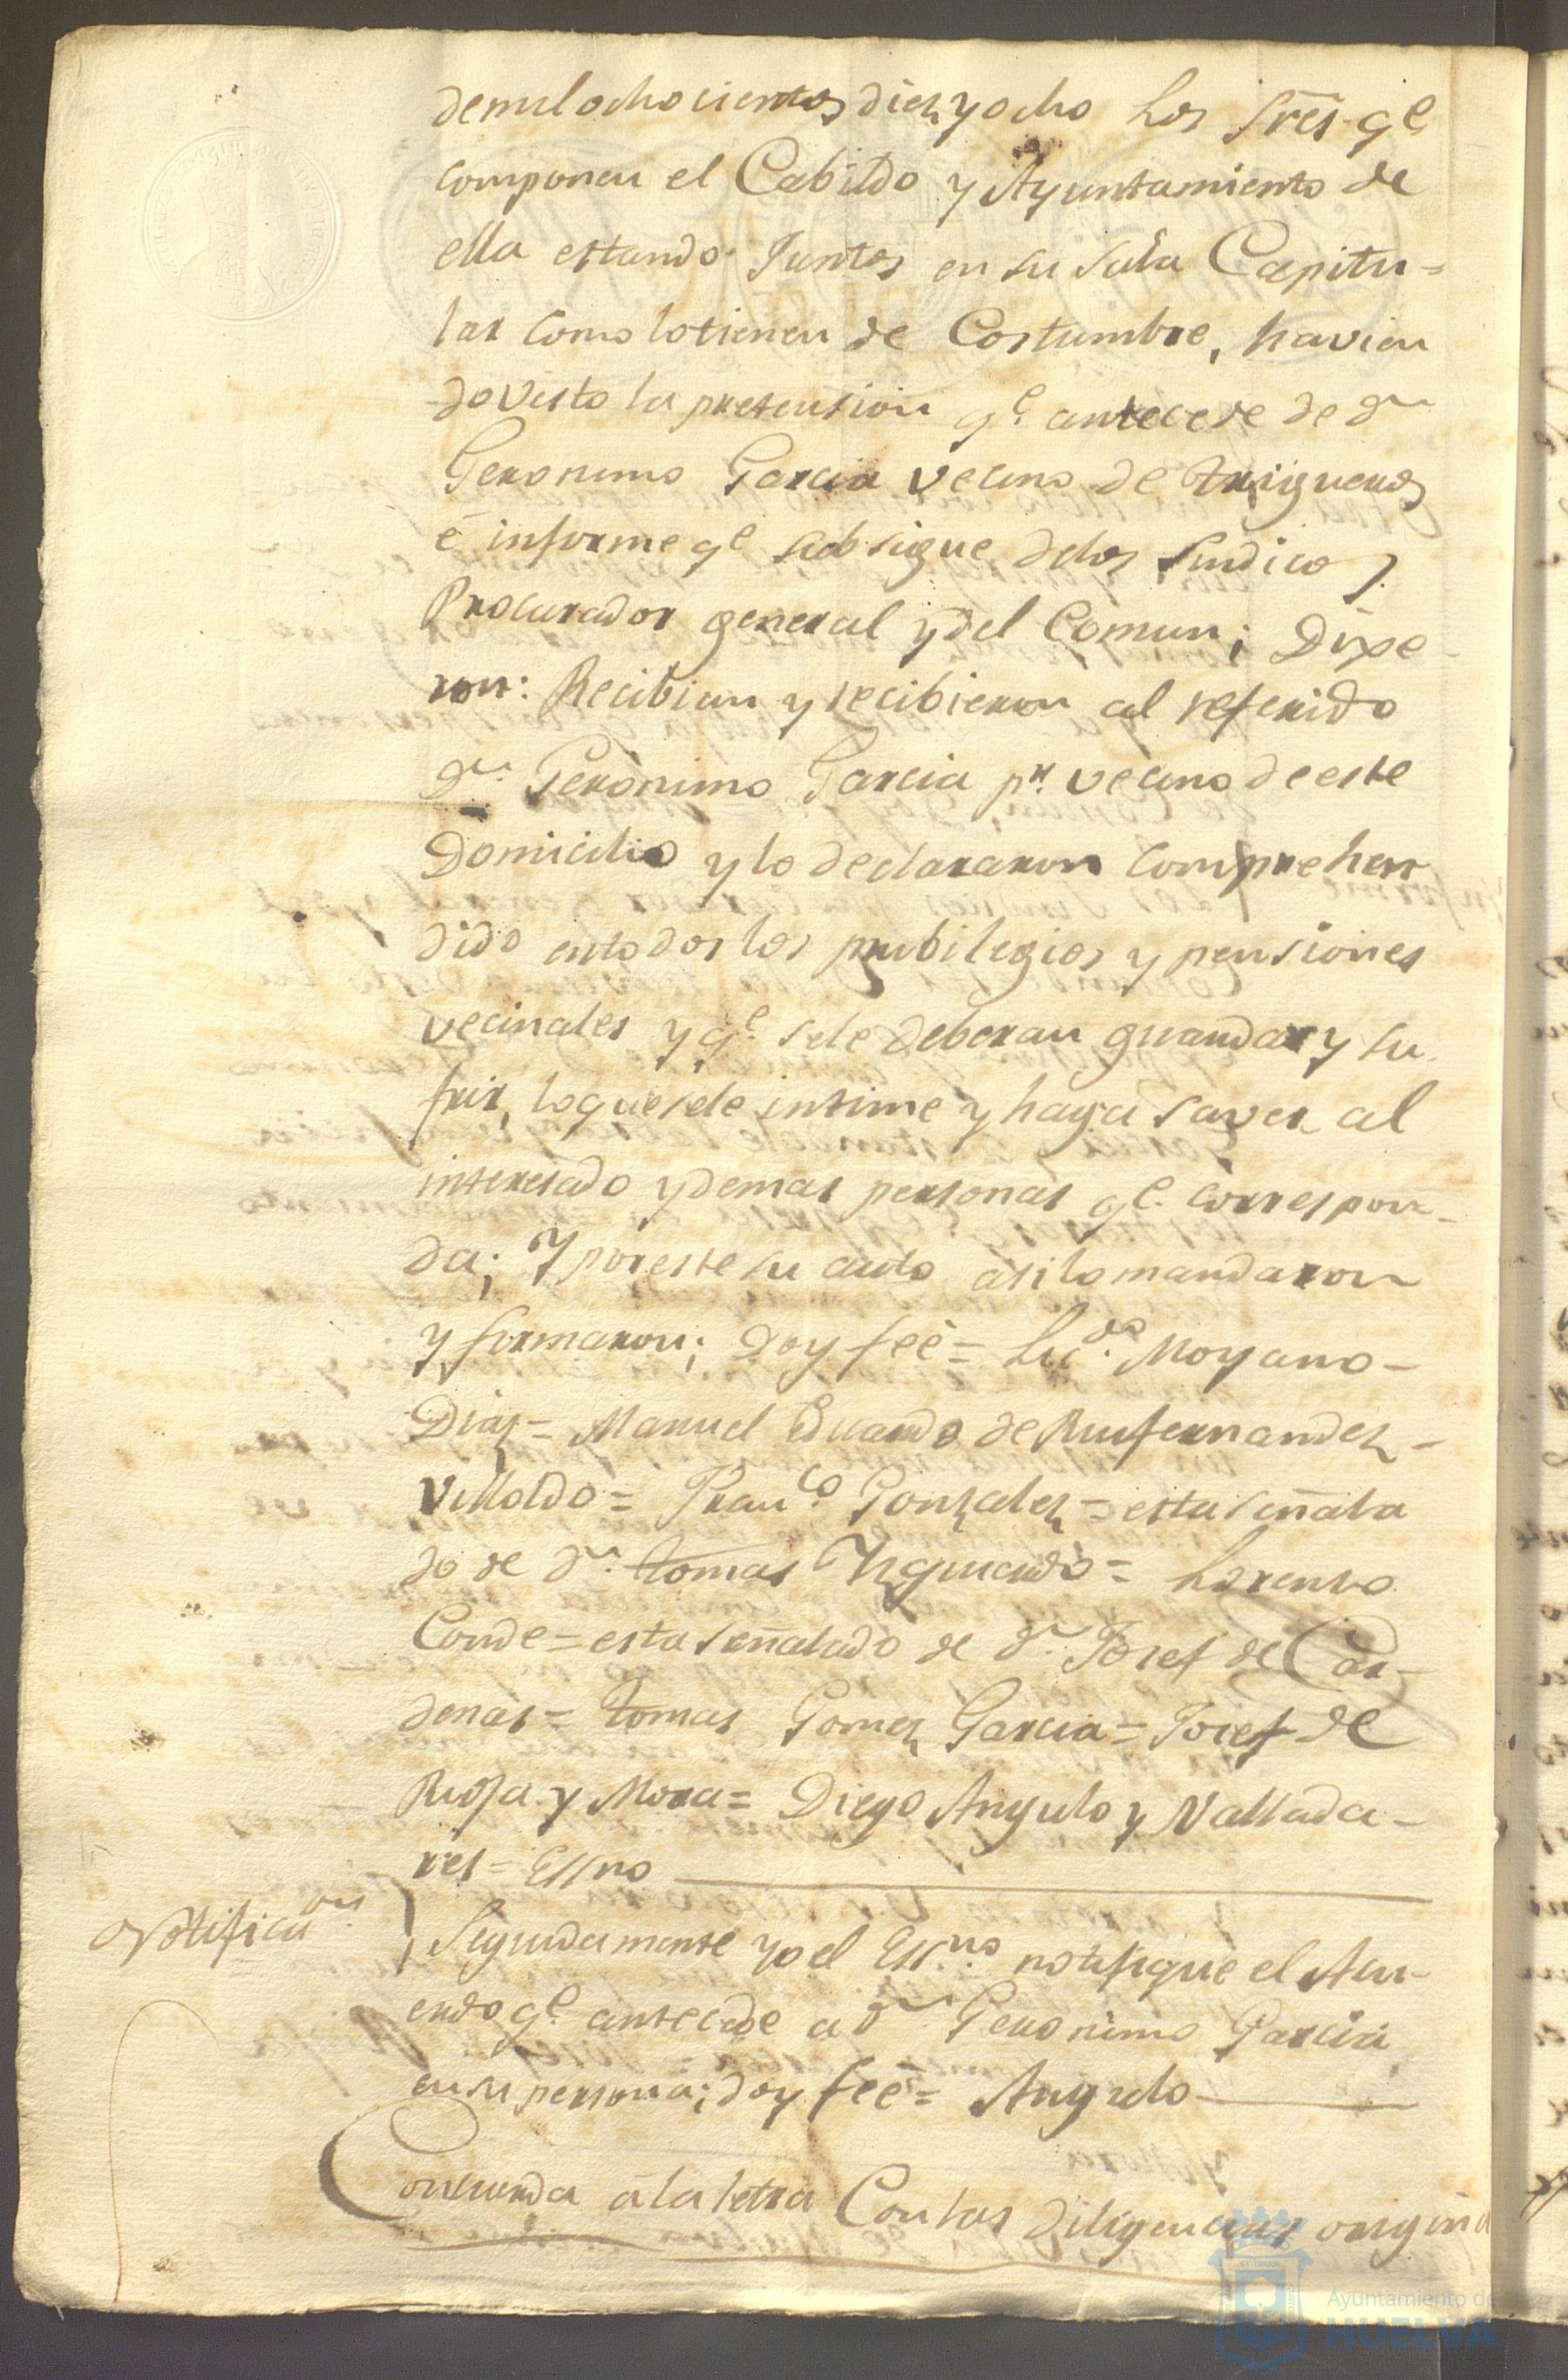 demilochocientos diez y ocho Los Sres. qe.
componen el Cabildo y Ayuntamiento de
ella estando Juntos en su Sala Capitu=
lar como lo tienen de Costumbre, havien
do visto la pretension qe. antecede de dn.
Geronimo Garcia vecino de trigueros
é informe qe. subsigue delos Sindicos
Procurador general y del Comun; Dixe-
ron: Recibian y recibieron al referido
Dn. Geronimo Garcia pr. vecino de este
Domicilio y lo declararon comprehen
dido entodos los pribilegios y pensiones
vecinales y qe. sele deberan guardar y su
frir, loque sele intime y haga saver al
interesado y demas personas qe. correspon-
da; Y por este su auto asi lo mandaron
y firmaron; Doy feé= Licdo. Moyano-
Diaz= Manuel Eduardo de Ruifernandez-
Villoldo= Franco. Gonzalez= esta señala
do de Dn. tomas Yzquierdo= Lorenzo
Conde= esta señalado de Dn. Josef de Car-
denas= tomas Gomez Garcia= Josef de
Rioja y Mora= Diego Angulo y Vallada-
res= Essno
Notificaon. Seguidamente yo el Essno. notifique el Acu-
erdo qe. antecede a Dn. Geronimo Garcia
en su persona; doy feé= Angulo
Concuerda á la letra Con las diligencias origina
Ayuntamiento de
HUELVA